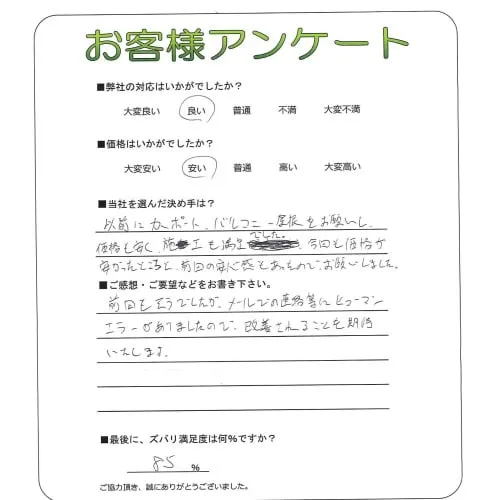 お客様アンケート
■弊社の対応はいかがでしたか？
大変良い 良い 普通 不満 大変不満
■価格はいかがでしたか？
大変安い 安い 普通 高い 大変高い
■当社を選んだ決め手は？
以前にカーポート、バルコニー屋根をお願いし、
価格も安く、施工も満足でした。今回も価格が
安かったところと、前回の安心感もあったので、お願いしました。
■ご感想・ご要望などをお書き下さい。
前回もそうでしたが、メールでの連絡等にヒューマン
エラーがありましたので、改善されることを期待
いたします。
■最後に、ズバリ満足度は何％ですか？
85 %
ご協力頂き、誠にありがとうございました。